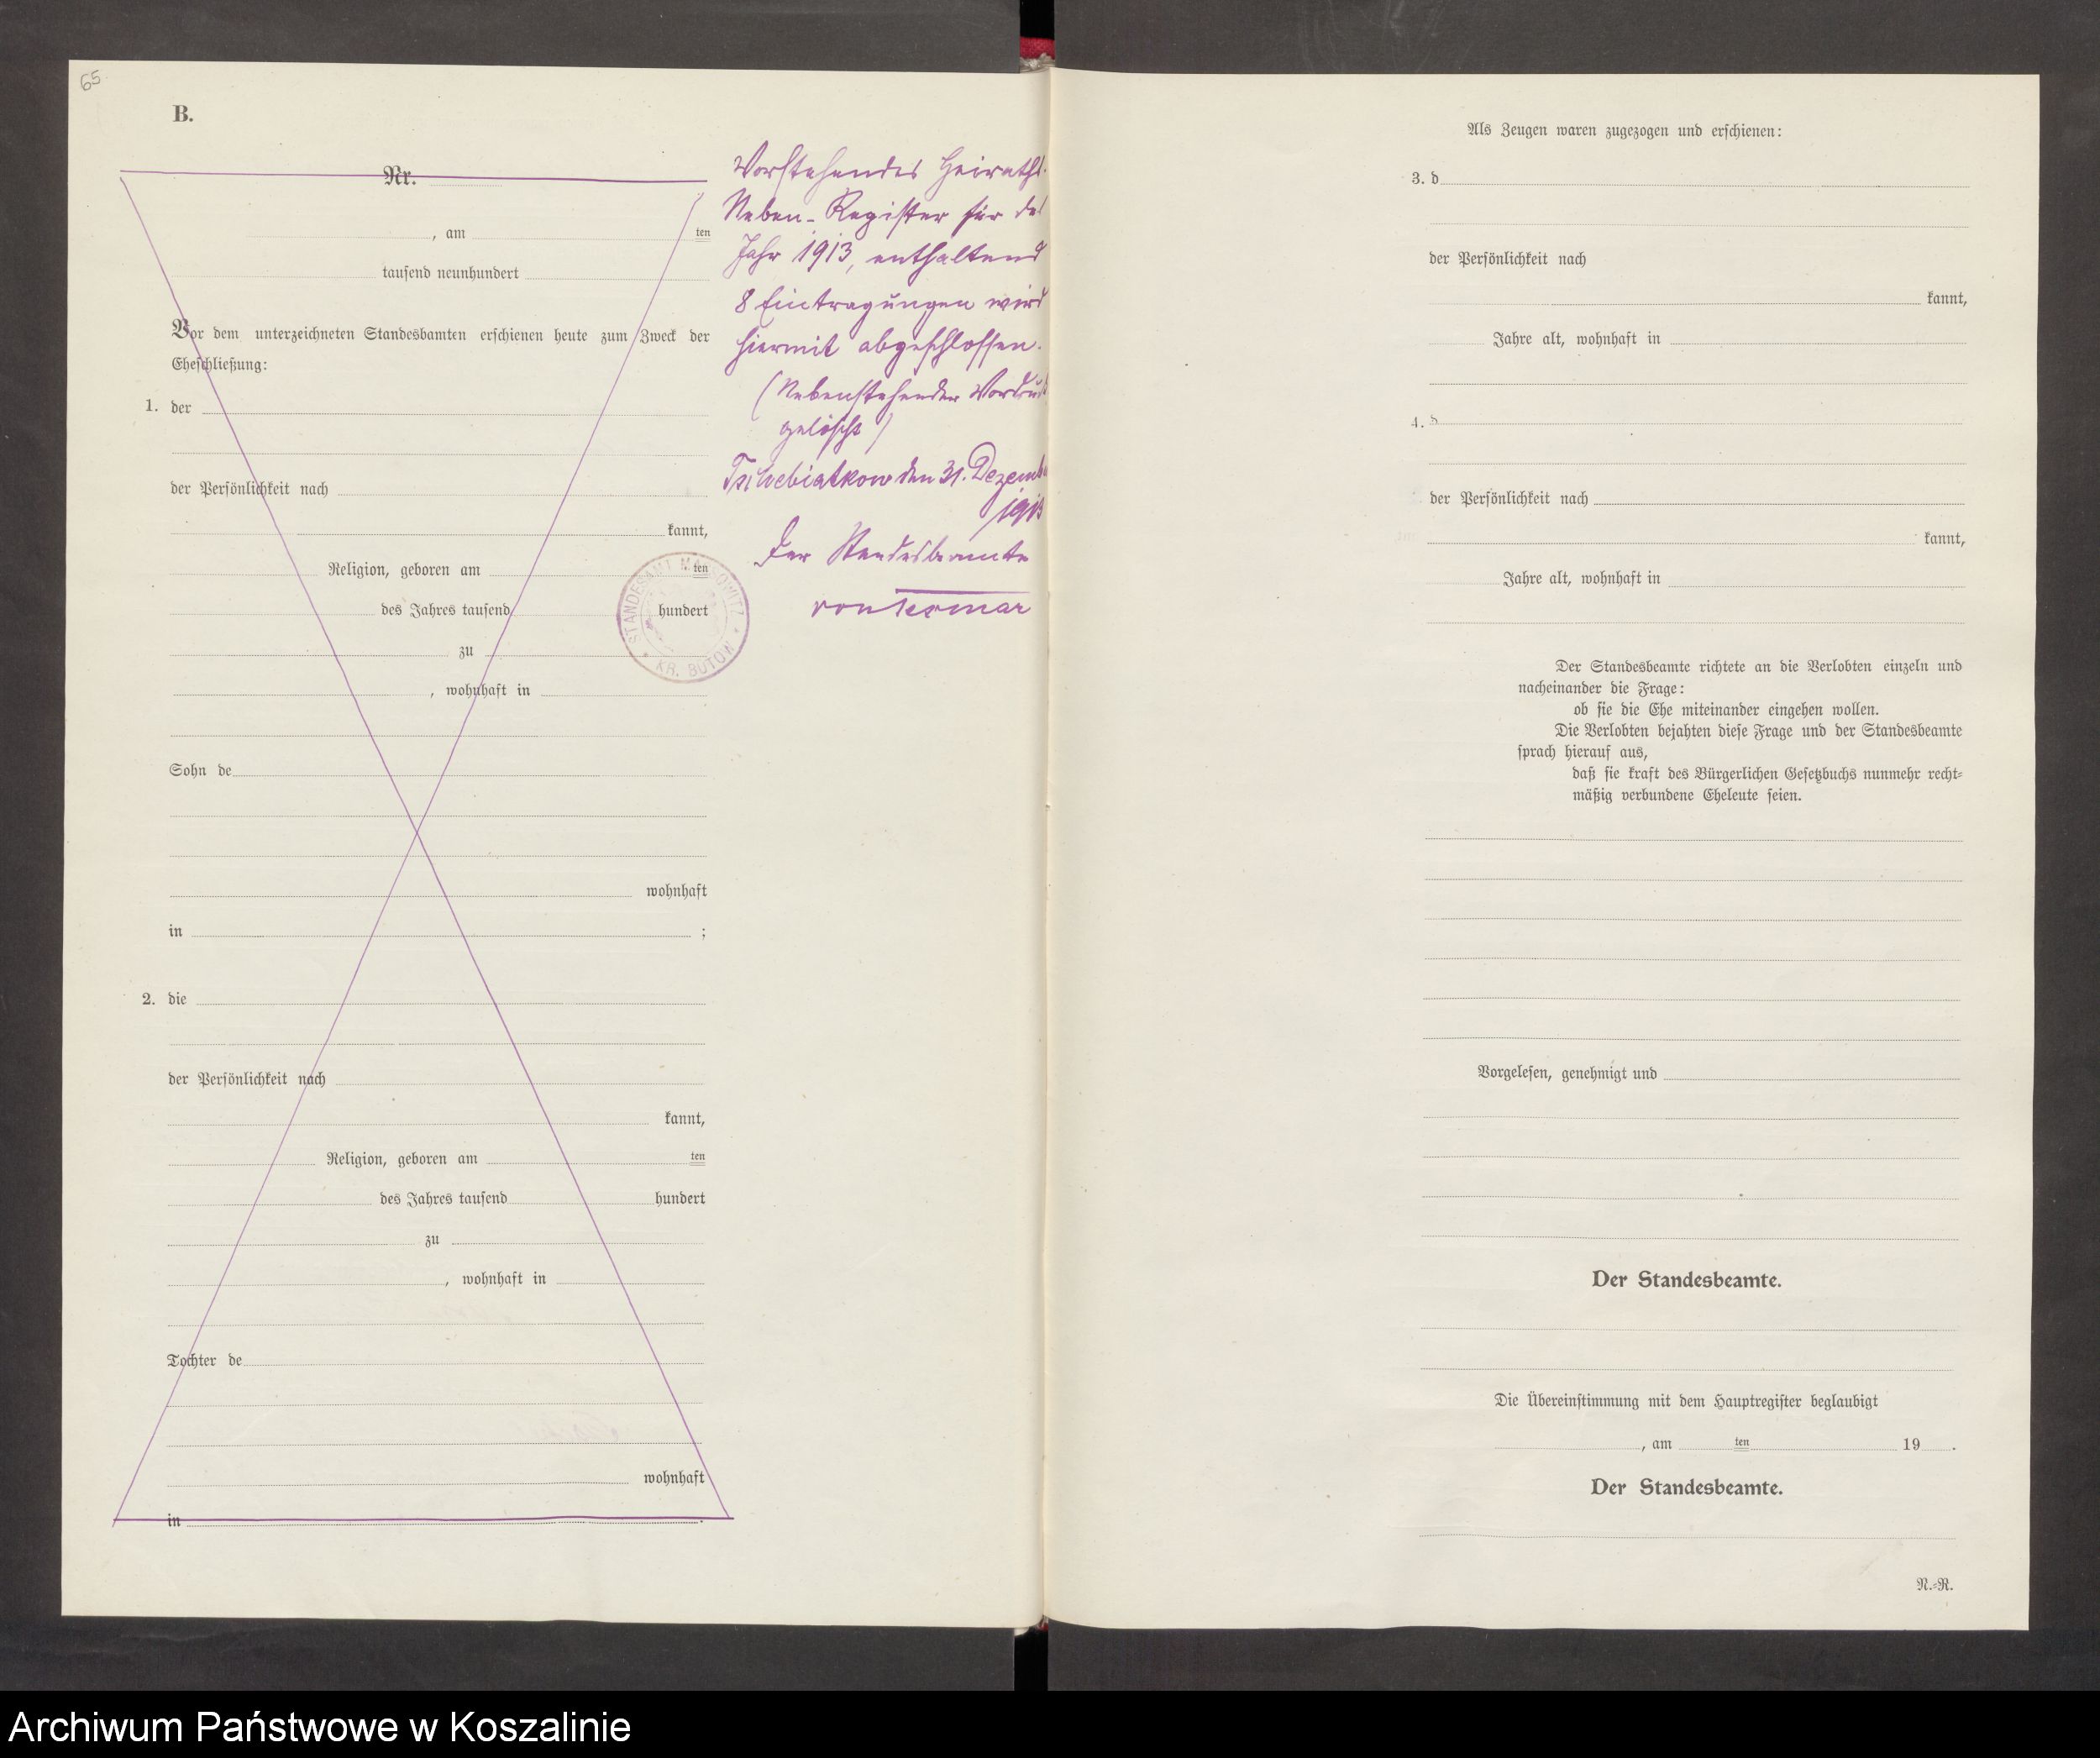 65
B.
Nr.
, am ten
tausend neunhundert
Vor dem unterzeichneten Standesbamten erschienen heute zum Zweck der
Eheschließung:
1. der
der Persönlichkeit nach
kannt,
Religion, geboren am ten
des Jahres tausend hundert
zu
, wohnhaft in
Sohn de
wohnhaft
in ;
2. die
der Persönlichkeit nach
kannt,
Religion, geboren am ten
des Jahres tausend hundert
zu
, wohnhaft in
Tochter de
wohnhaft
in .
Vorstehendes Heiraths-
Neben-Register für das
Jahr 1913, enthaltend
8 Eintragungen wird
hiermit abgeschlossen.
(Nebenstehender Vordruck
gelöscht)
den 31. Dezember
1913
Der Standesbeamte
von
STANDESAMT MASSOWITZ
* KR. BÜTOW *
Als Zeugen waren zugezogen und erschienen:
3. d
der Persönlichkeit nach
kannt,
Jahre alt, wohnhaft in
4. d
der Persönlichkeit nach
kannt,
Jahre alt, wohnhaft in
Der Standesbeamte richtete an die Verlobten einzeln und
nacheinander die Frage:
ob sie die Ehe miteinander eingehen wollen.
Die Verlobten bejahten diese Frage und der Standesbeamte
sprach hierauf aus,
daß sie kraft des Bürgerlichen Gesetzbuchs nunmehr recht-
mäßig verbundene Eheleute seien.
Vorgelesen, genehmigt und
Der Standesbeamte.
Die Übereinstimmung mit dem Hauptregister beglaubigt
, am ten 19 .
Der Standesbeamte.
N.-R.
Archiwum Państwowe w Koszalinie